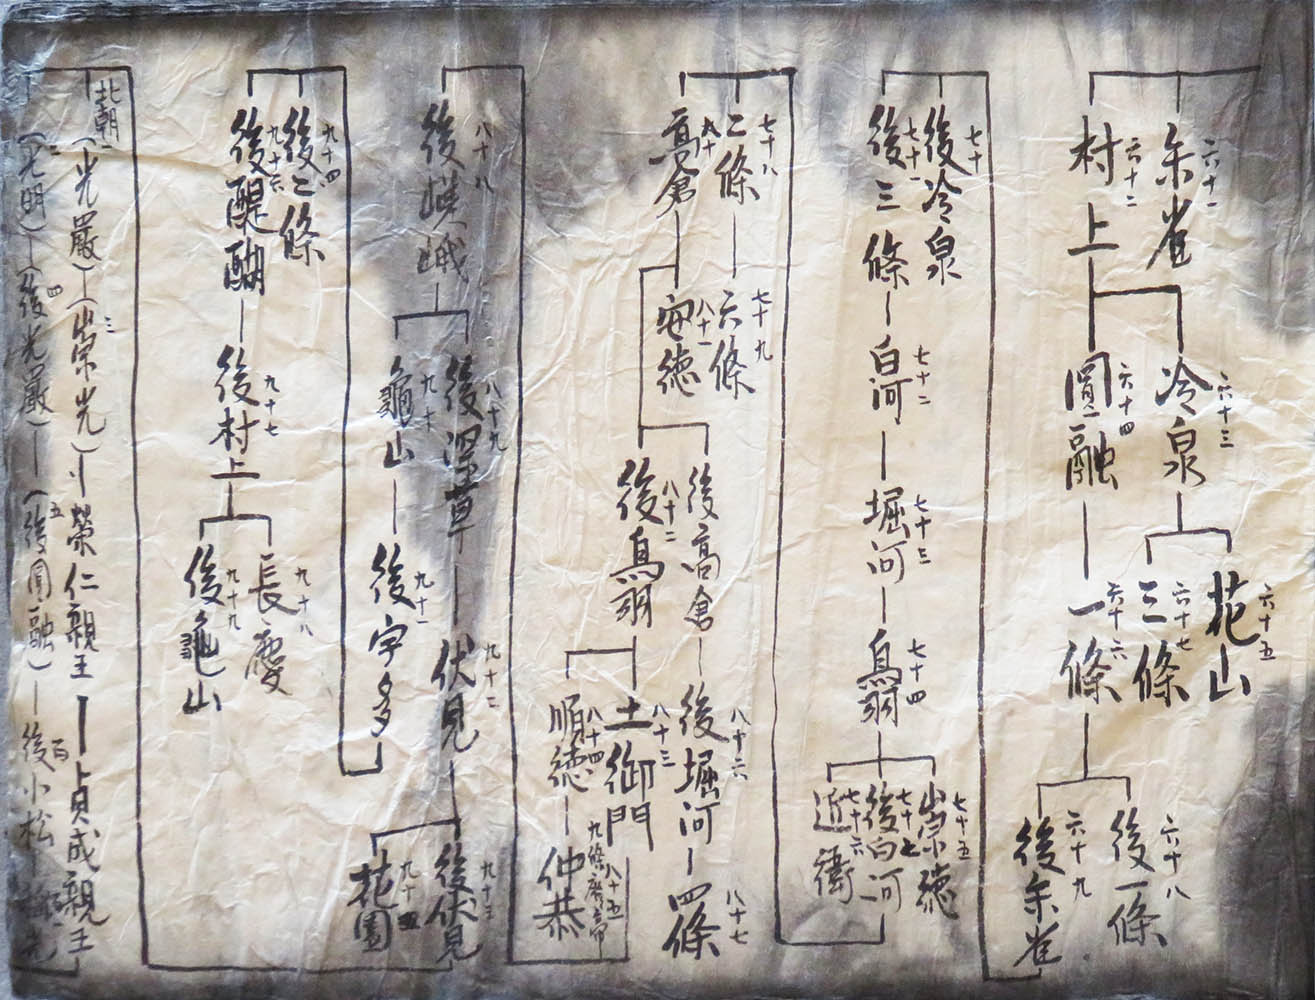 六十一
朱雀
六十二
村上
六十三
冷泉
六十四
圓融
六十五
花山
六十七
三條
六十六
一條
六十八
後一條
六十九
後朱雀
七十
後冷泉
七十一
後三條
七十二
白河
七十三
堀河
七十四
鳥羽
七十五
崇徳
七十七
後白河
七十六
近衛
七十八
二條
七十九
六條
八十
高倉
八十一
安徳
後高倉
八十六
後堀河
八十七
四條
八十二
後鳥羽
八十三
土御門
八十四
順徳
八十五
九條廃帝
仲恭
八十八
後嵯峨
八十九
後深草
九十二
伏見
九十三
後伏見
九十五
花園
九十
龜山
九十一
後宇多
九十四
後二條
九十六
後醍醐
九十七
後村上
九十八
長慶
九十九
後龜山
北朝
一
(光嚴)
三
(崇光)
榮仁親王
貞成親王
二
(光明)
四
(後光嚴)
五
(後圓融)
百
後小松